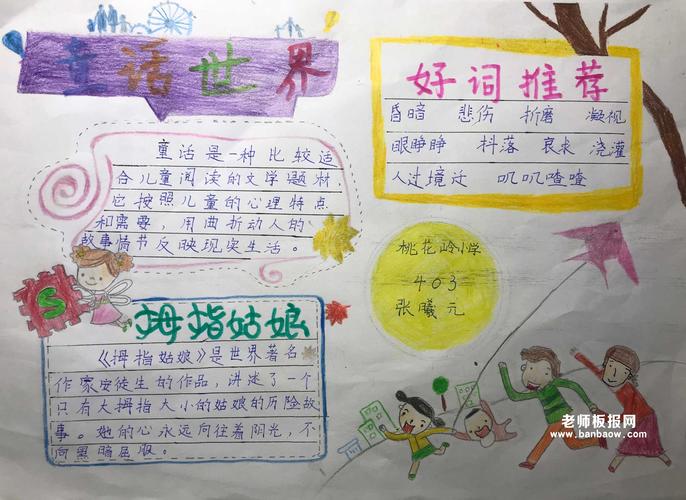 童话世界
童话是一种比较适
合儿童阅读的文学题材
它按照儿童的心理特点
和需要，用曲折动人的
故事情节反映现实生活。
S
拇指姑娘
《拇指姑娘》是世界著名
作家安徒生的作品，讲述了一个
只有大拇指大小的姑娘的历险故
事。她的心永远向往着阳光，不
向黑暗屈服。
好词推荐
昏暗 悲伤 折磨 凝视
眼睁睁 抖落 哀求 浇灌
人过境迁 叽叽喳喳
桃花岭小学
403
张曦元
老师板报网
www.banbaow.com